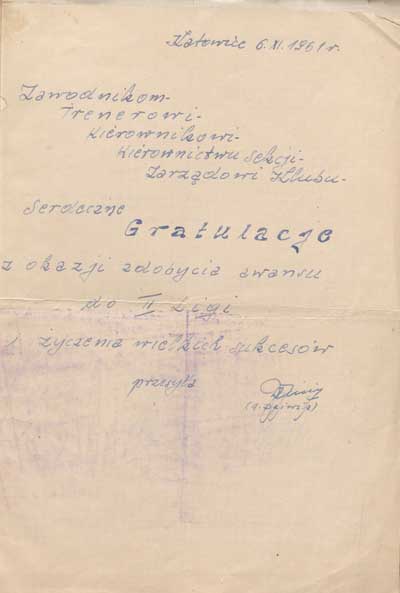 Katowice 6.XI.1961 r.
Zawodnikom-
Trenerowi-
Kierownikowi-
Kierownictwu Sekcji-
Zarządowi Klubu-
Serdeczne
Gratulacje
z okazji zdobycia awansu
do II Ligi
i życzenia wielkich sukcesów
przesyła